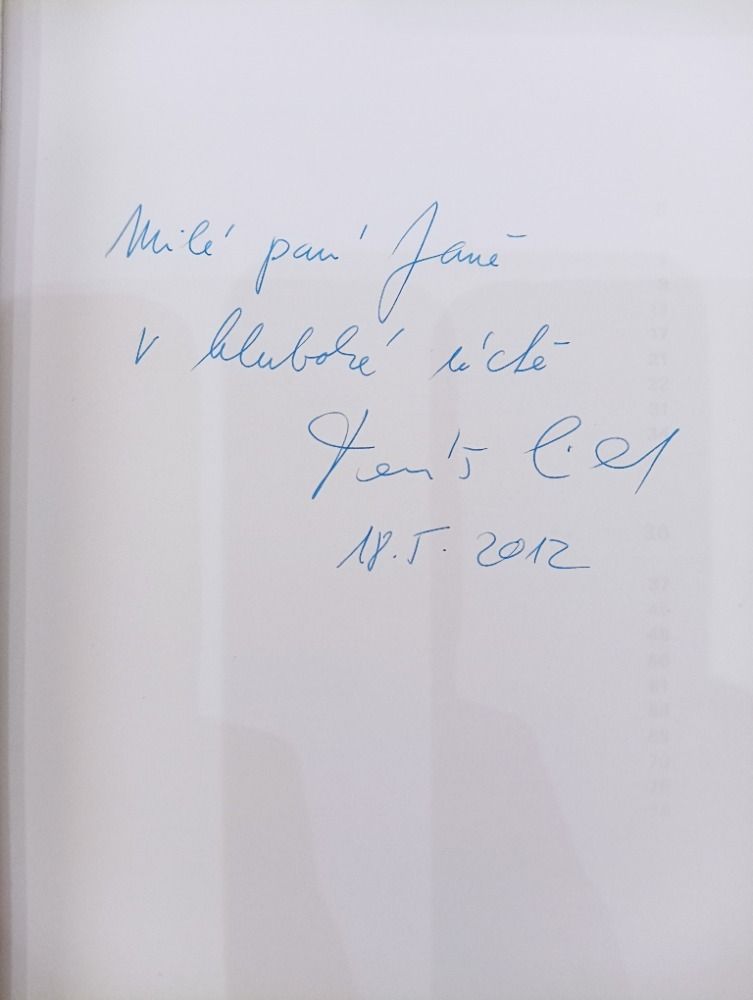 Milé paní Janě
v hluboké úctě
18.5.2012